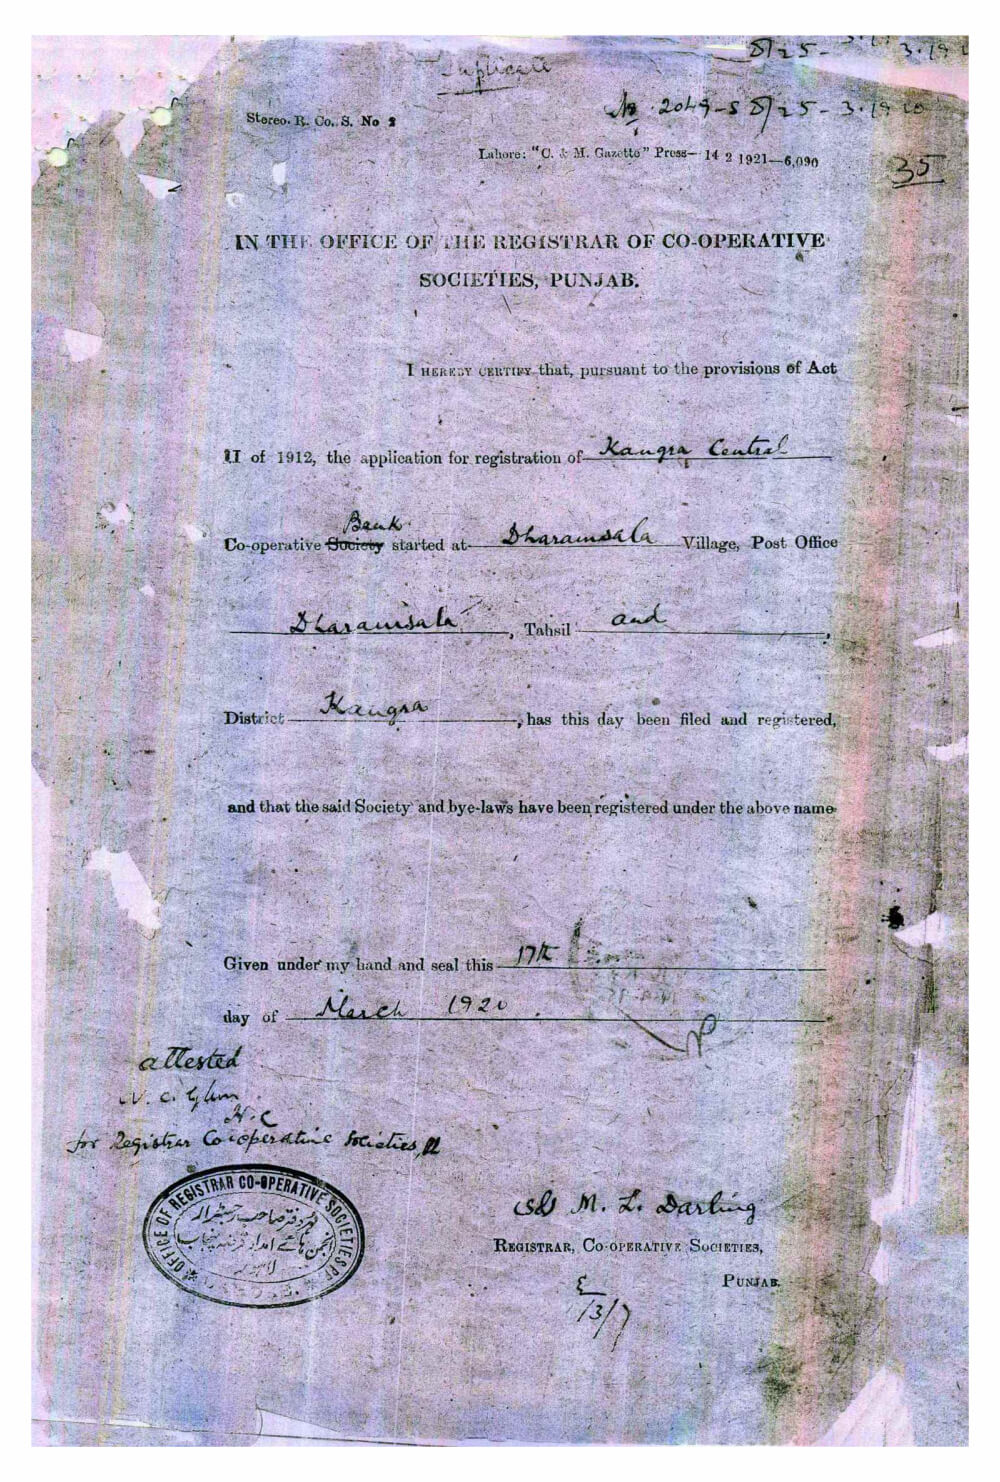 Duplicate
Stereo. R. Co. S. No 2
No. 2049-S D/ 25-3-1920
Lahore: "C. & M. Gazette" Press— 14 2 1921—6,090
35
IN THE OFFICE OF THE REGISTRAR OF CO-OPERATIVE
SOCIETIES, PUNJAB.
I HEREBY CERTIFY that, pursuant to the provisions of Act
II of 1912, the application for registration of Kangra Central
Bank
Co-operative Society started at Dharamsala Village, Post Office
Dharamsala, Tahsil and,
District Kangra, has this day been filed and registered,
and that the said Society and bye-laws have been registered under the above name
Given under my hand and seal this 17th
day of March 1920.
attested
H.C
for Registrar Co-operative Societies,
OFFICE OF REGISTRAR CO-OPERATIVE SOCIETIES
Sd/ M. L. Darling
REGISTRAR, CO-OPERATIVE SOCIETIES,
PUNJAB.